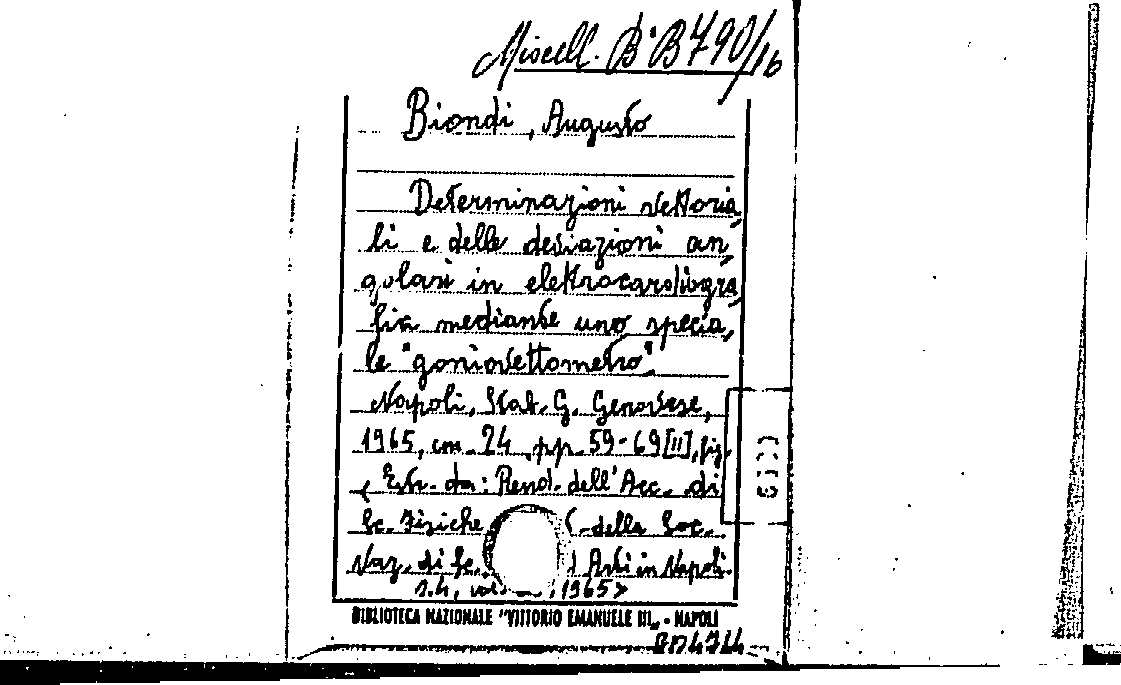 Miscell. B.B 790/16
Biondi, Augusto
Determinazioni vettoria,
li e delle deviazioni an,
golari in elettrocardiogra,
fia mediante uno specia,
le "goniovettometro".
Napoli, Stab. G. Genovese,
1965, cm. 24, pp. 59-69 [II], fig.
< Estr. da: Rend. dell'Acc. di
Sc. Fisiche della Soc.
Naz. di Sc. Arti in Napoli
s. 4, vol. 1965>
BIBLIOTECA NAZIONALE "VITTORIO EMANUELE III„ - NAPOLI